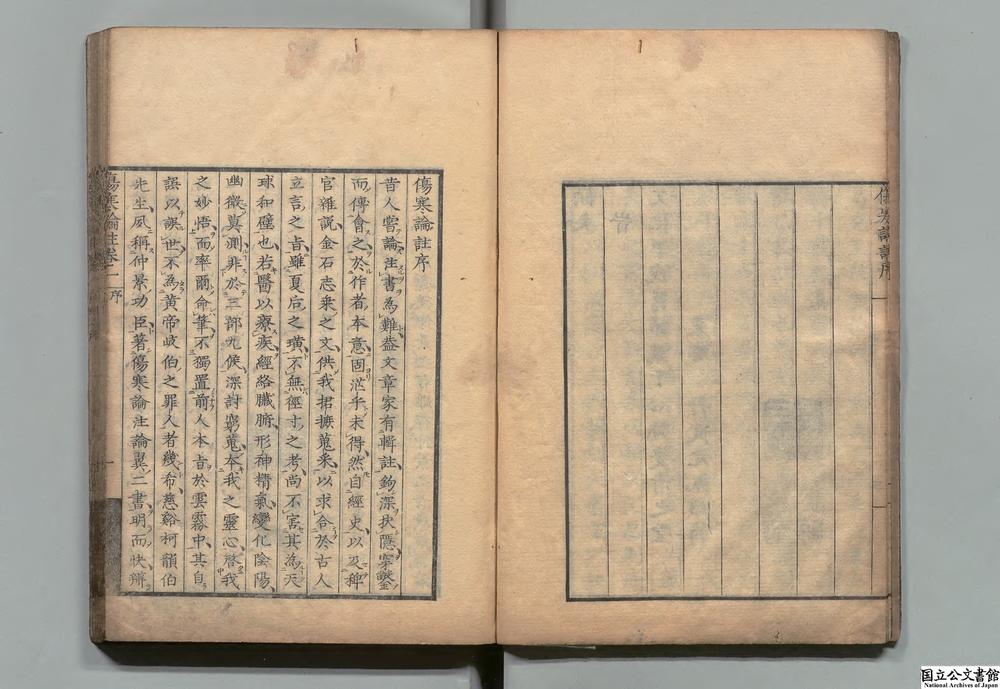 傷寒論註序
昔人嘗論注書為難蓋文章家有蜩註鉤深抉隱穿鑿
而傅會之於作者本意固茫乎未得然自經史以及稗
官雜説金石志乘之文供我捃摭蒐釆以求合於古人
立言之旨雖夏后之璜不無徑寸之考尚不害其為天
球和璧也若醫以療疾經絡臓腑形神精氣變化陰陽
幽微莫測非於三部九候深討窮蒐本我之靈心啓我
之妙悟而率爾命筆不獨置前人本旨於雲霧中其自
誤以誤世不為黃帝岐伯之罪人者幾希慈谿柯韻伯
先生夙稱仲景功臣著傷寒論注論翼二書明而快辯
傷寒論註卷一 序
国立公文書館
National Archives of Japan